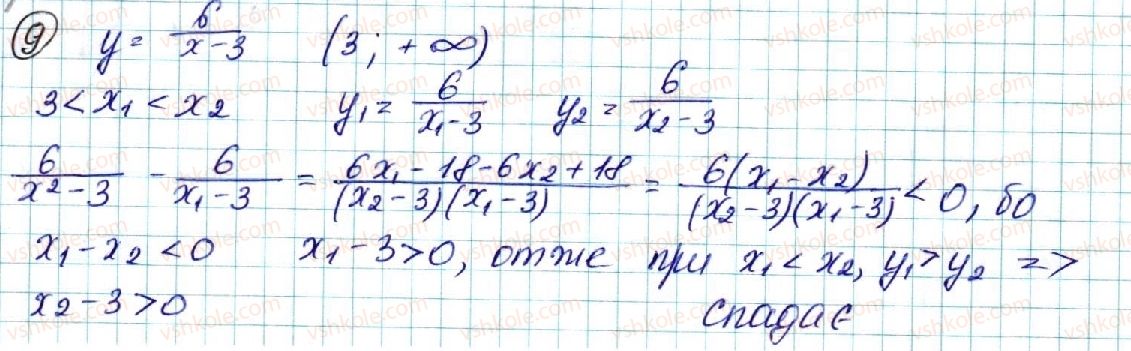 9 y = 6/(x-3) (3; +∞)
3 < x₁ < x₂ y₁ = 6/(x₁-3) y₂ = 6/(x₂-3)
6/(x²-3) - 6/(x₁-3) = (6x₁-18-6x₂+18)/((x₂-3)(x₁-3)) = 6(x₁-x₂)/((x₂-3)(x₁-3)) < 0, бо
x₁-x₂ < 0 x₁-3 > 0, отже при x₁ < x₂, y₁ > y₂ =>
x₂-3 > 0 спадає